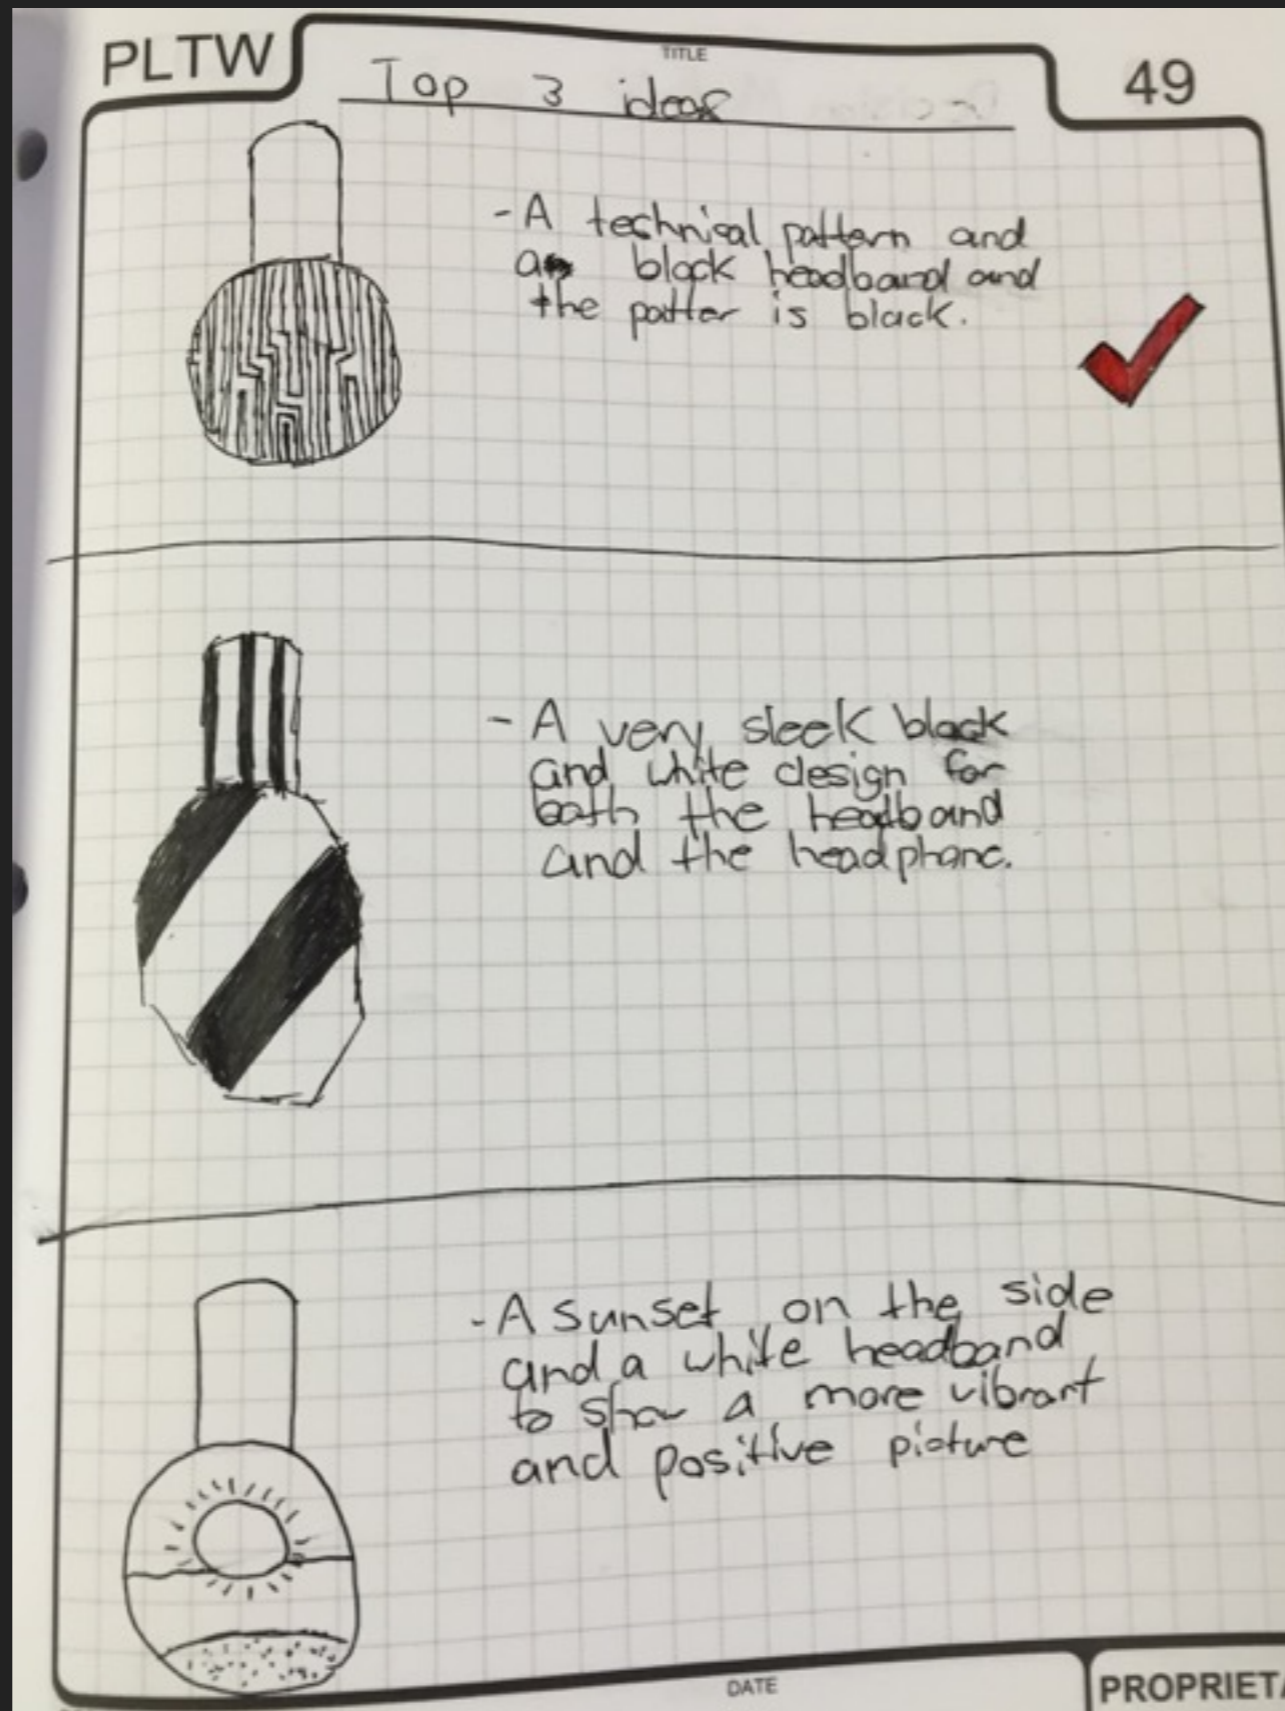 PLTW
TITLE
49
Top 3 ideas
- A technical pattern and
a black headband and
the patter is black.
- A very sleek black
and white design for
both the headband
and the headphone.
- A sunset on the side
and a white headband
to show a more vibrant
and positive picture
DATE
PROPRIETA